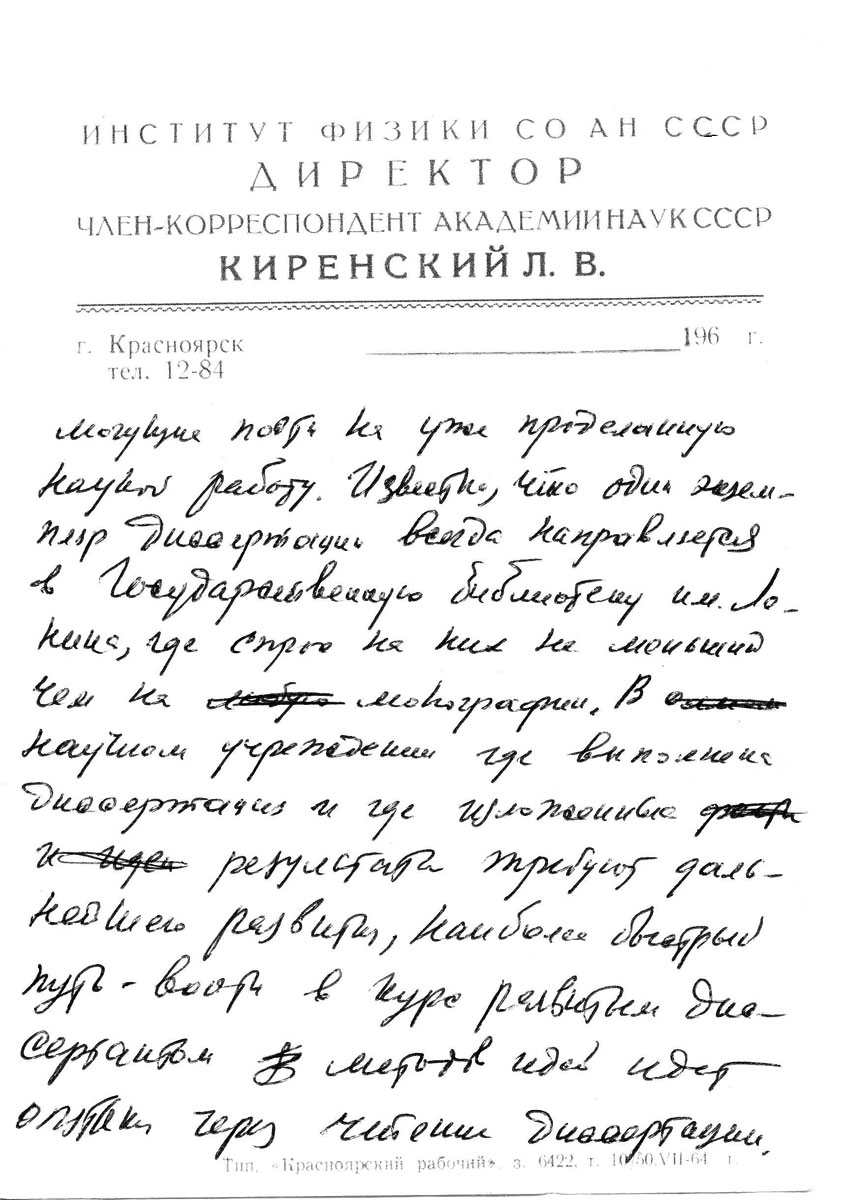 ИНСТИТУТ ФИЗИКИ СО АН СССР
ДИРЕКТОР
ЧЛЕН-КОРРЕСПОНДЕНТ АКАДЕМИИ НАУК СССР
КИРЕНСКИЙ Л. В.
г. Красноярск 196 г.
тел. 12-84
могущие пойти на уже проделанную
научной работу. Известно, что один экзем-
пляр диссертации всегда направляется
в Государственную библиотеку им. Ле-
нина, где спрос на них не меньший
чем на монографии. В
научном учреждении где выполнена
диссертация и где изложенные
и идеи результаты требуют даль-
нейшего развития, наиболее быстрый
путь - войти в курс развитым дис-
сертантом методов идей идет
опять через чтение диссертации.
Тип. «Красноярский рабочий», з. 6422, т. 10750.VII-64 г.